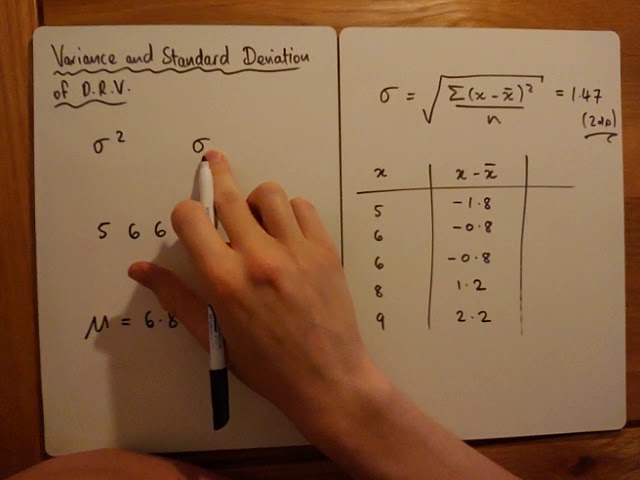 Variance and Standard Deviation
of D.R.V.
σ² σ
5 6 6
μ = 6.8
σ = √(Σ(x - x̄)²/n) = 1.47
(2dp)
x x - x̄
5 -1.8
6 -0.8
6 -0.8
8 1.2
9 2.2